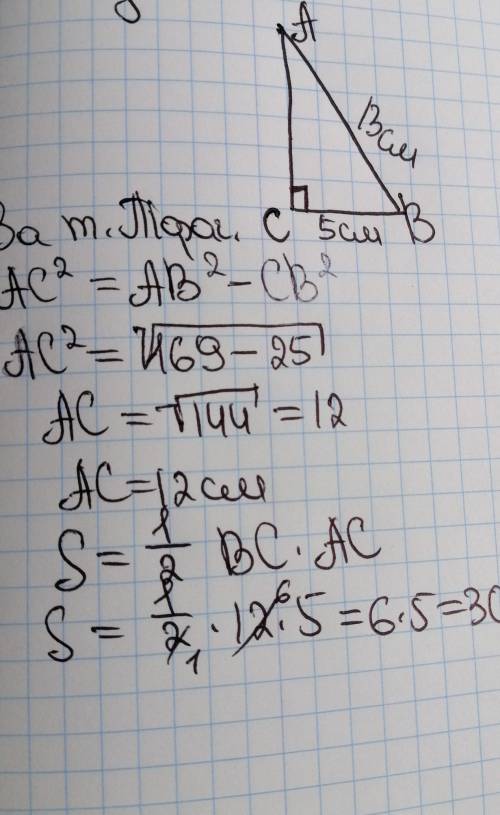 A
13см
C 5см B
За т. Піфаг.
AC² = AB² - CB²
AC² = √169 - 25
AC = √144 = 12
AC = 12см
S = 1/2 BC · AC
S = 1/2 1 · 12 6 · 5 = 6 · 5 = 30